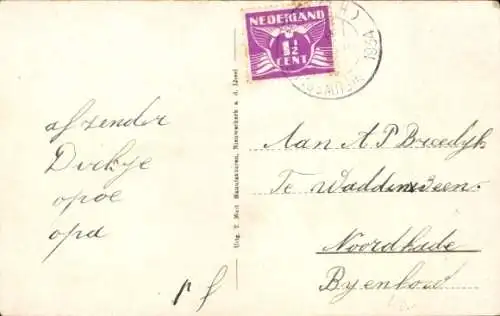 NEDERLAND
1½
CENT
1934
afzender
Dirkje
opoe
opa
Uitg. T. Mort Manufacturen, Nieuwerkerk a. d. IJssel
Aan A P Breedijk
Te Waddinxveen
Noordkade
Byenkouf